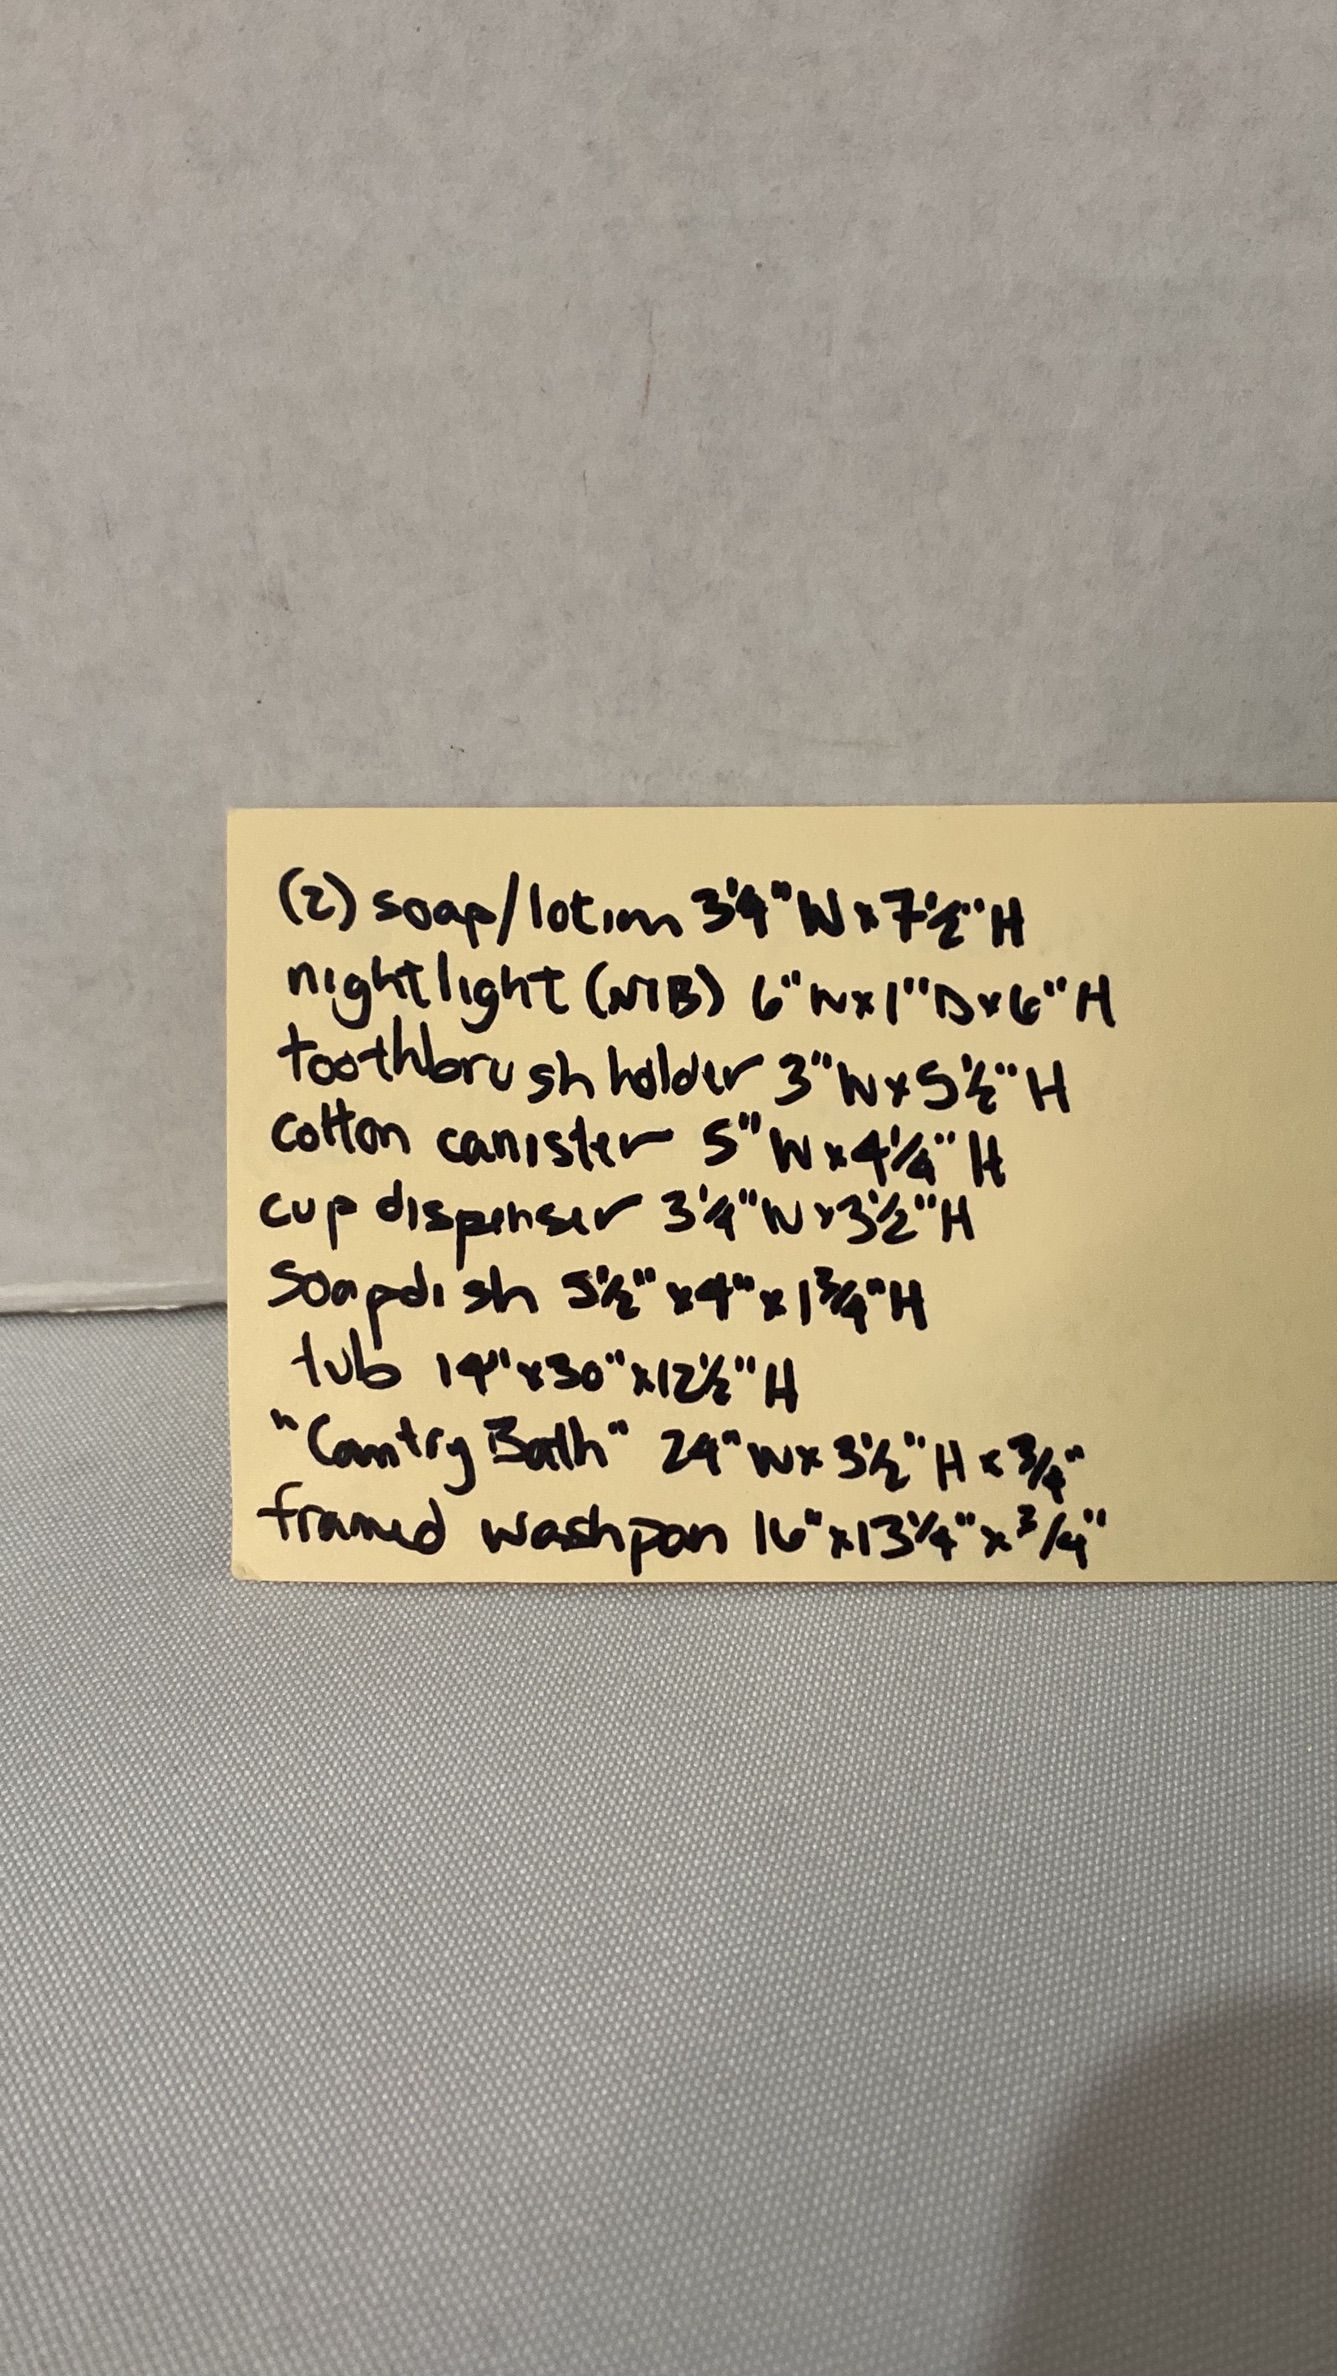 (2) soap/lotion 3¼"W x 7½"H
nightlight (NIB) 6"W x 1"D x 6"H
toothbrush holder 3"W x 5½"H
cotton canister 5"W x 4¼"H
cup dispenser 3¼"W x 3½"H
soapdish 5½" x 4" x 1¾"H
tub 14" x 30" x 12½"H
"Country Bath" 24"W x 3½"H x ¾"
framed washpan 16" x 13¼" x ¾"